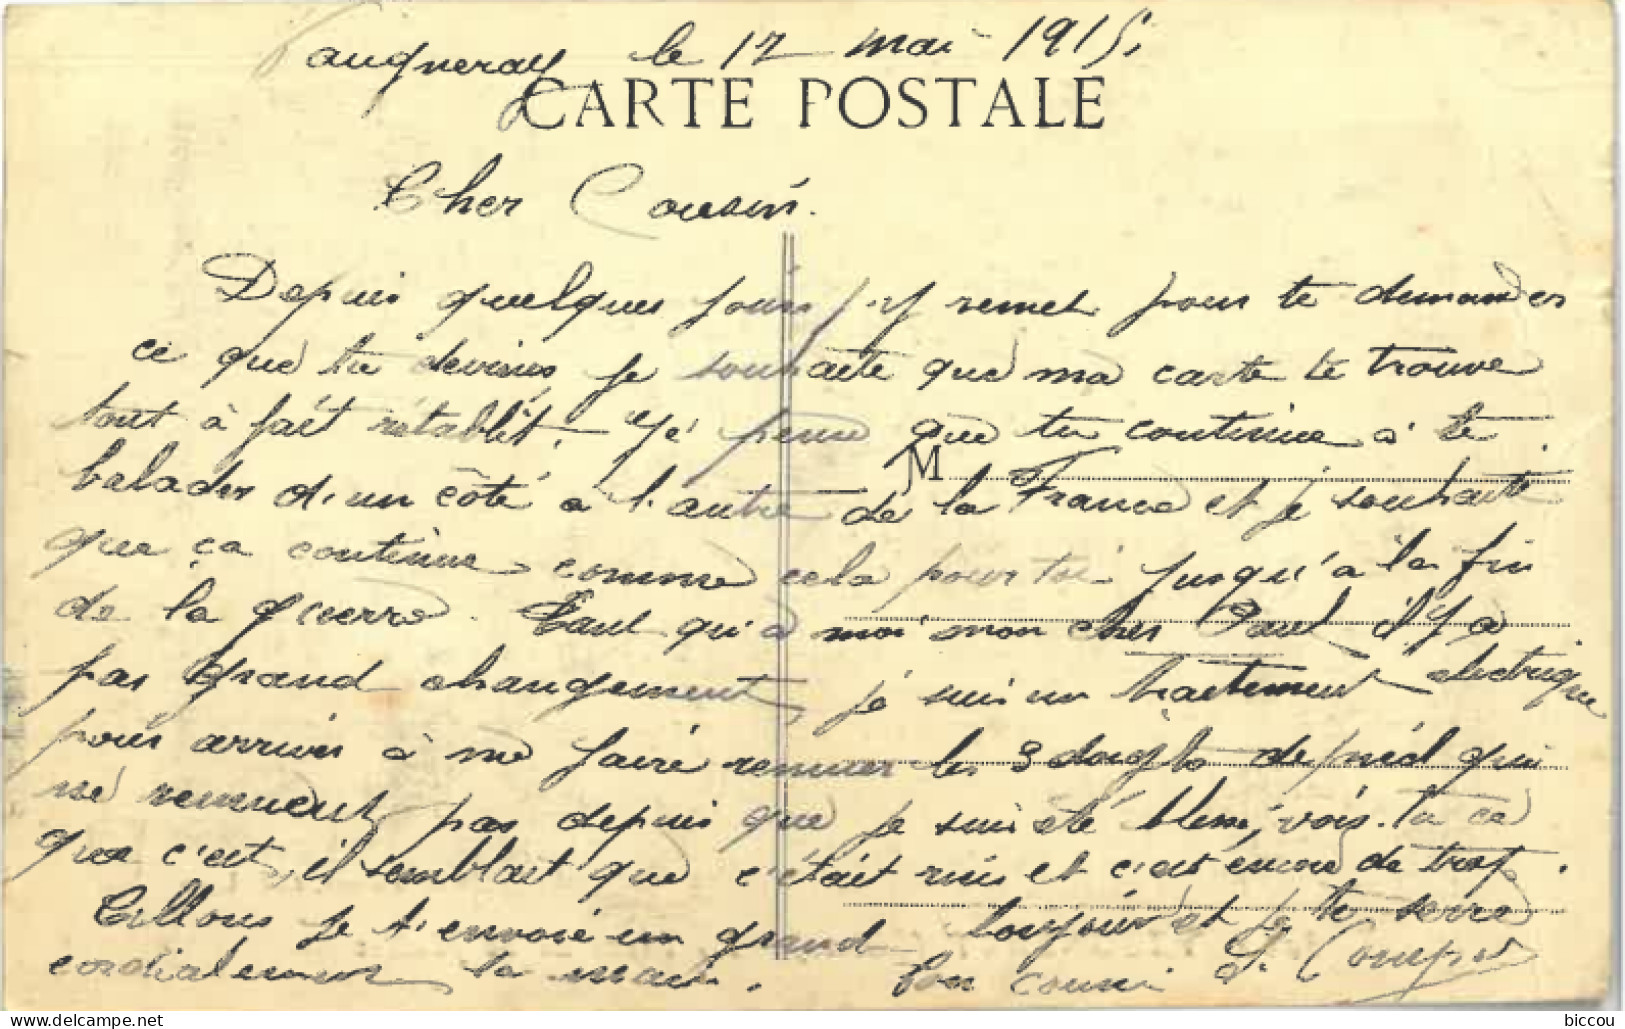 Vaugneray le 12 mai 1915.
CARTE POSTALE
Cher Cousin.
Depuis quelques jours j'y remet pour te demander
ce que tu deviens, je souhaite que ma carte te trouve
tout à fait rétablit. Je pense que tu continue à te
M
balader d'un côté à l'autre de la France et je souhaite
que ça continue comme cela pour toi jusqu'à la fin
de la guerre. Tant qu'à moi mon cher Paul il y a
pas grand changement, je suis un traitement électrique
pour arriver à me faire remuer les 3 doigts de pied qui
ne remuent pas depuis que je suis été blessé, vois-tu ce
que c'est, il semblait que c'était rien et c'est encore de trop.
Allons je t'envoie un grand bonjour et je te serre
cordialement la main. Ton cousin
biccou